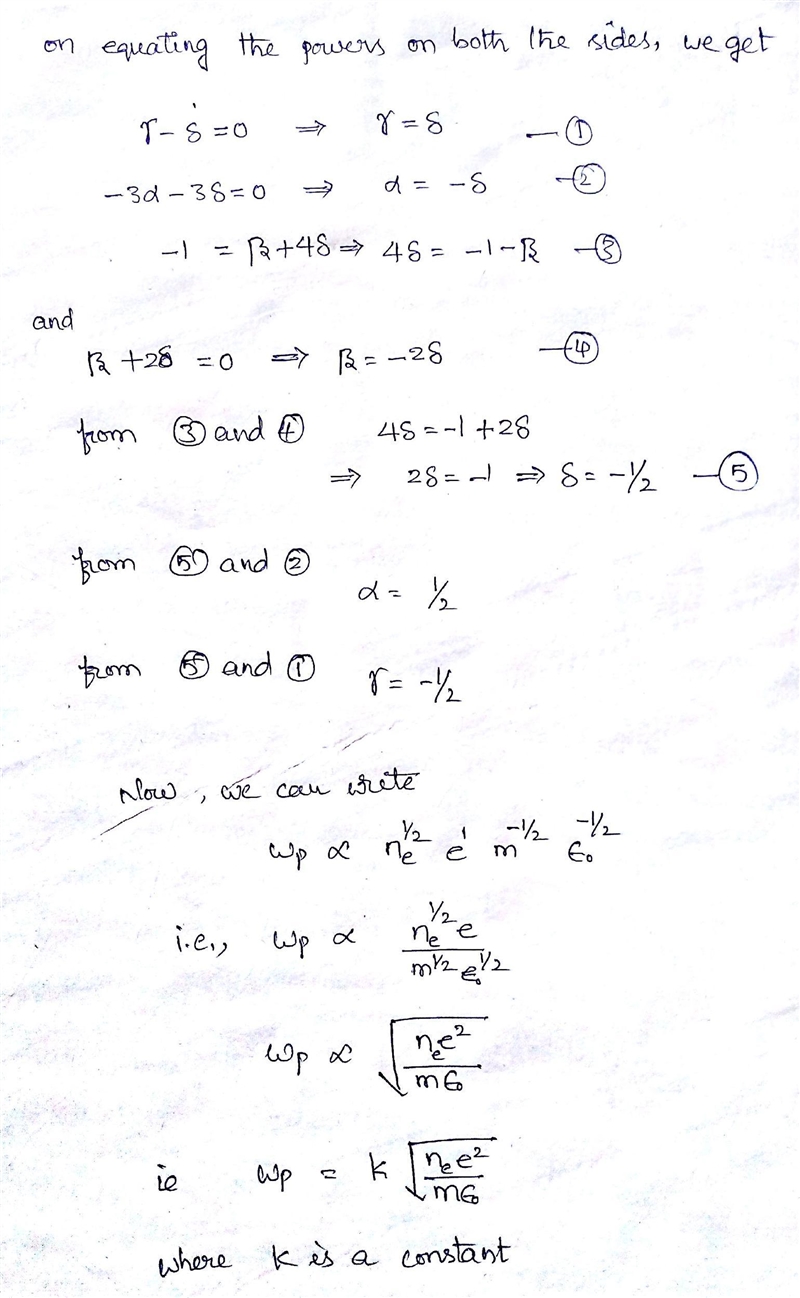 on equating the powers on both the sides, we get
γ - δ = 0 ⇒ γ = δ —①
-3α - 3δ = 0 ⇒ α = -δ —②
-1 = β + 4δ ⇒ 4δ = -1 - β —③
and
β + 2δ = 0 ⇒ β = -2δ —④
from ③ and ④ 4δ = -1 + 2δ
⇒ 2δ = -1 ⇒ δ = -1/2 —⑤
from ⑤ and ②
α = 1/2
from ⑤ and ① γ = -1/2
Now, we can write
ωp ∝ ne^1/2 e^1 m^-1/2 ϵ0^-1/2
i.e., ωp ∝ ne^1/2 e / m^1/2 ϵ0^1/2
ωp ∝ √(ne e² / mϵ0)
ie ωp = k √(ne e² / mϵ0)
where k is a constant